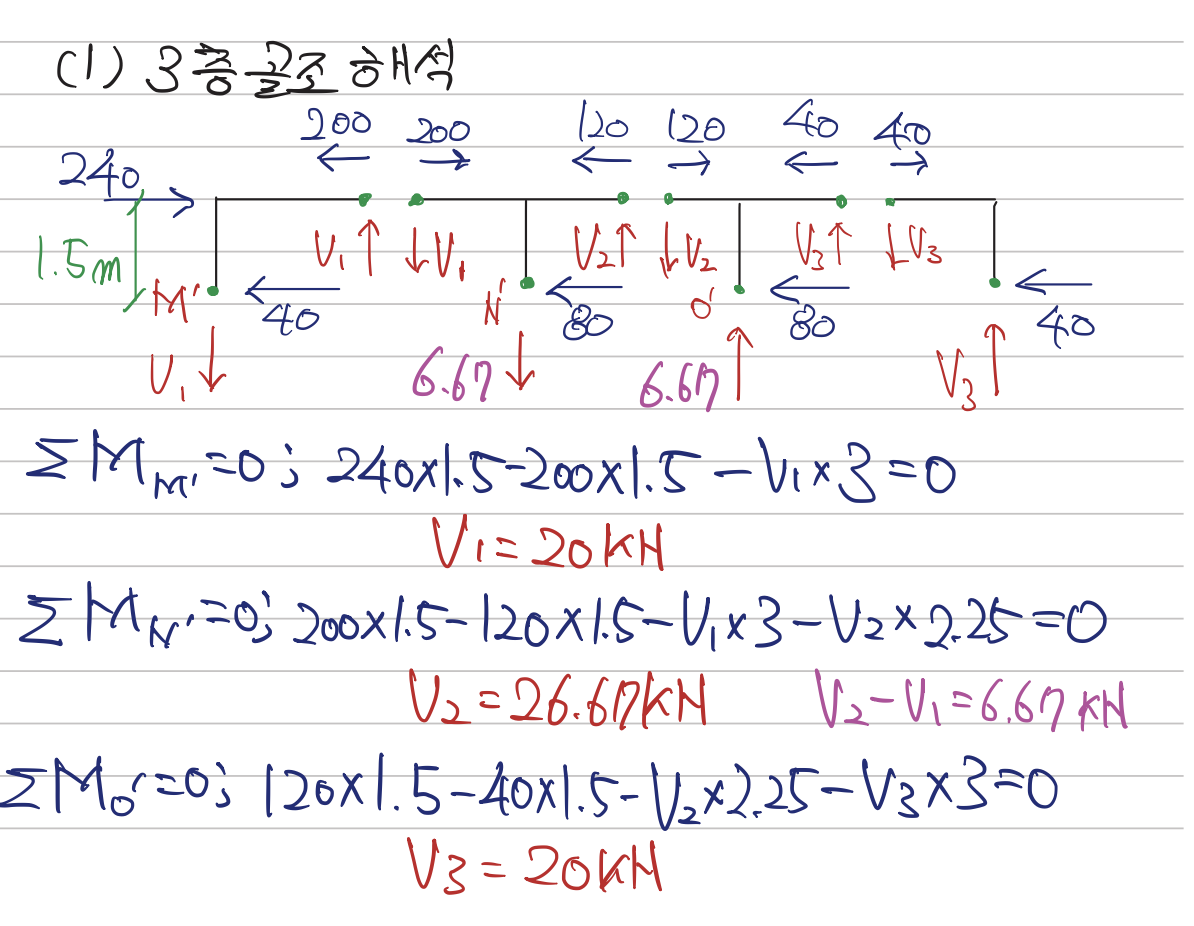 (1) 3층 골조 해석
200 200 120 120 40 40
240
1.5m V₁ V₁ V₂ V₂ V₃ V₃
M' 40 N' 80 O' 80 40
V₁ 6.67 6.67 V₃
ΣM_M' =0; 240×1.5-200×1.5-V₁×3=0
V₁=20kN
ΣM_N' =0; 200×1.5-120×1.5-V₁×3-V₂×2.25=0
V₂=26.67kN V₂-V₁=6.67kN
ΣM_O' =0; 120×1.5-40×1.5-V₂×2.25-V₃×3=0
V₃=20kN